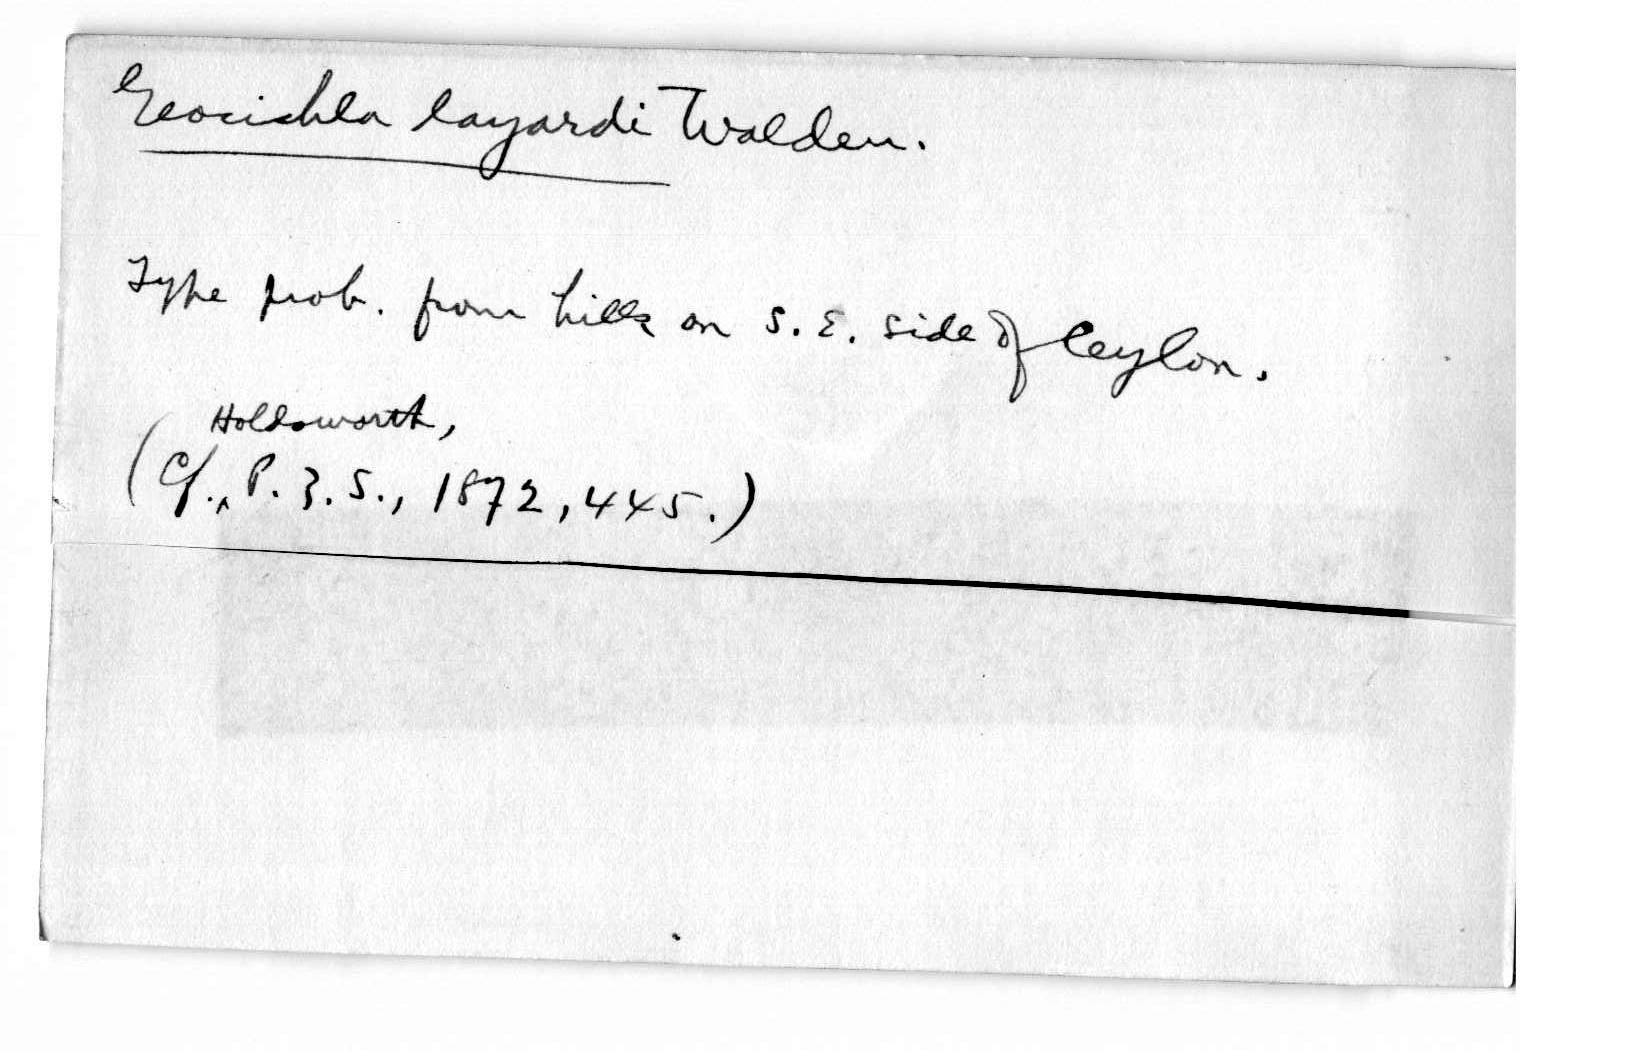 Geocichla layardi Walden.
Type prob. from hills on S. E. side of Ceylon.
(Cf., Holdsworth, P. Z. S., 1872, 445.)